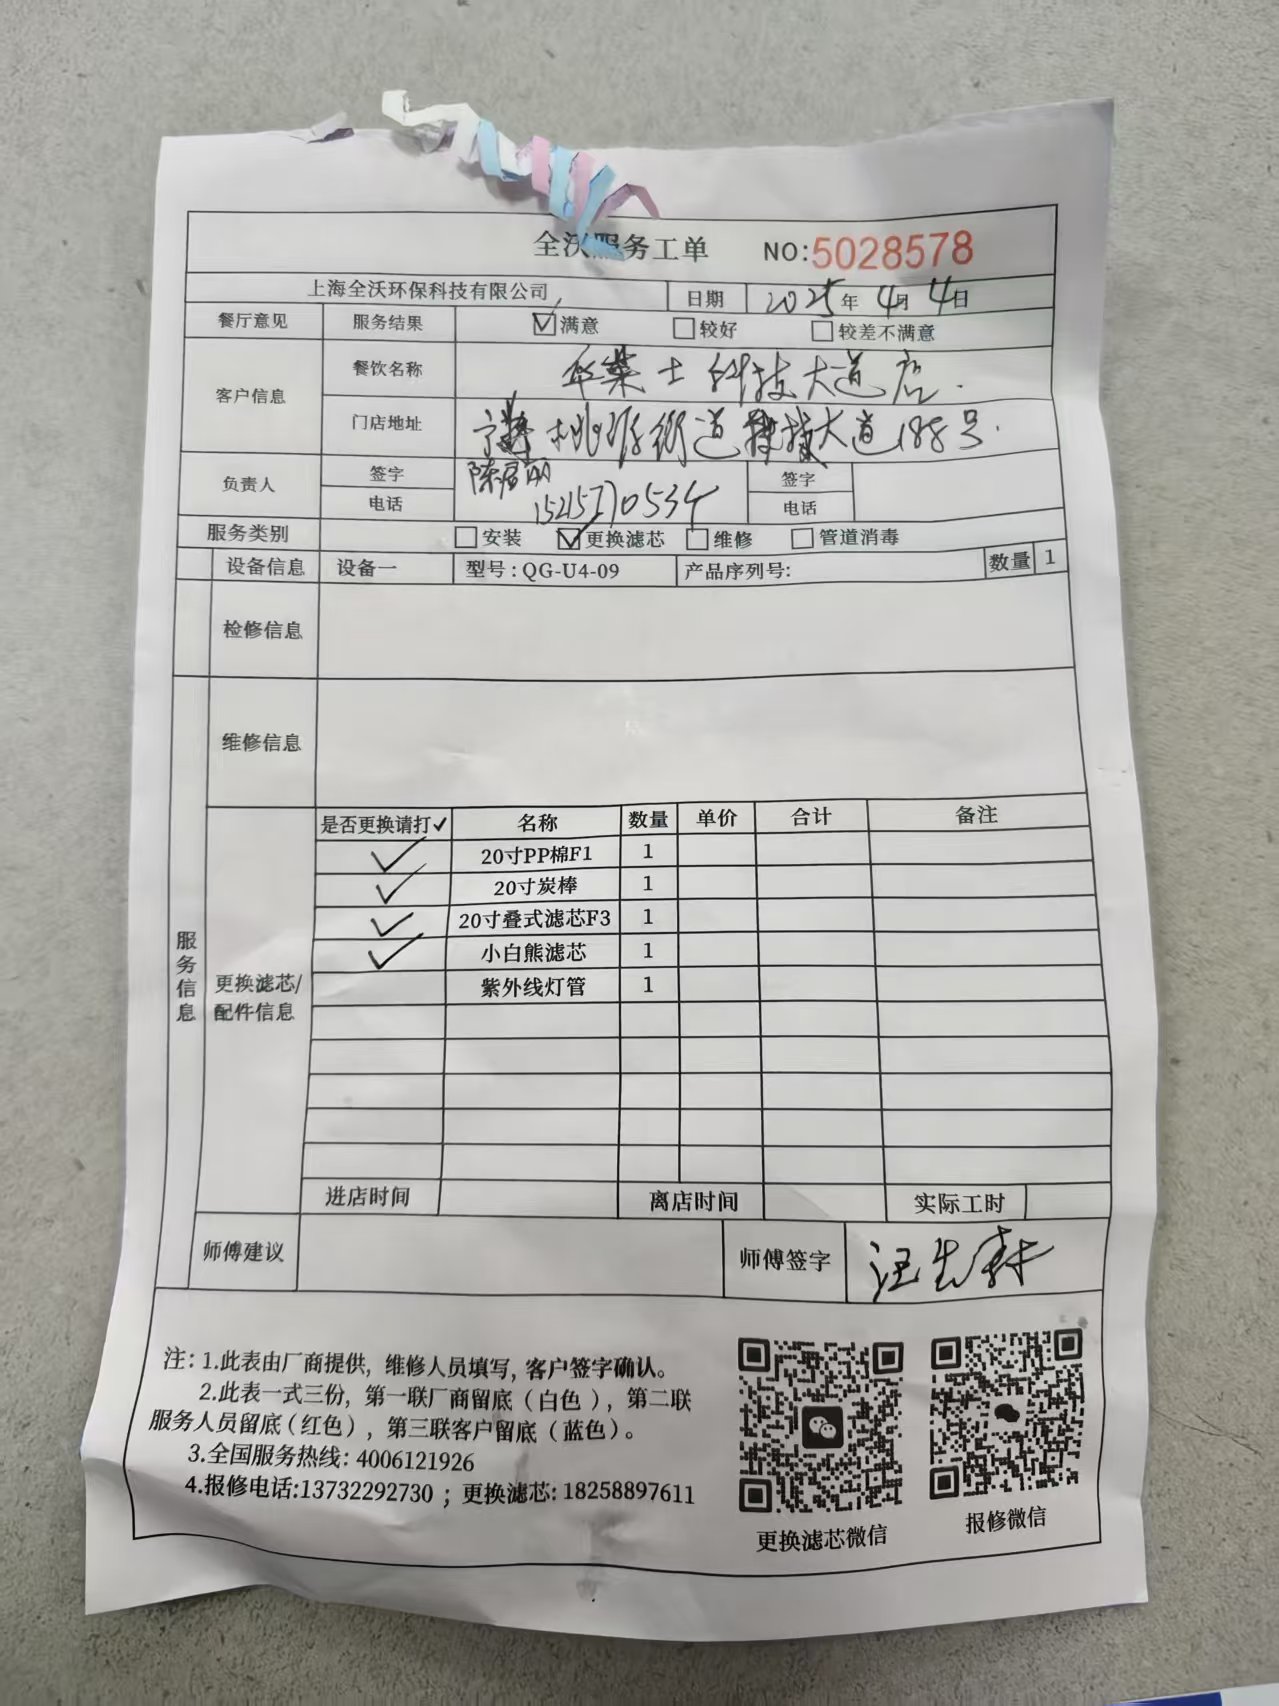 全沃服务工单 NO:5028578
上海全沃环保科技有限公司 日期 2025年4月4日
餐厅意见 服务结果 满意 较好 较差不满意
客户信息 餐饮名称 华莱士科技大道店.
门店地址 桃源街道科技大道188号.
负责人 签字 陈 签字
电话 15215770534 电话
服务类别 安装 更换滤芯 维修 管道消毒
设备信息 设备一 型号:QG-U4-09 产品序列号: 数量 1
检修信息
维修信息
服务信息
更换滤芯/配件信息
是否更换请打✓ 名称 数量 单价 合计 备注
✓ 20寸PP棉F1 1
✓ 20寸炭棒 1
✓ 20寸叠式滤芯F3 1
✓ 小白熊滤芯 1
紫外线灯管 1
进店时间 离店时间 实际工时
师傅建议 师傅签字 汪生
注:1.此表由厂商提供, 维修人员填写, 客户签字确认。
2.此表一式三份, 第一联厂商留底(白色), 第二联
服务人员留底(红色), 第三联客户留底(蓝色)。
3.全国服务热线: 4006121926
4.报修电话:13732292730 ; 更换滤芯: 18258897611
更换滤芯微信 报修微信